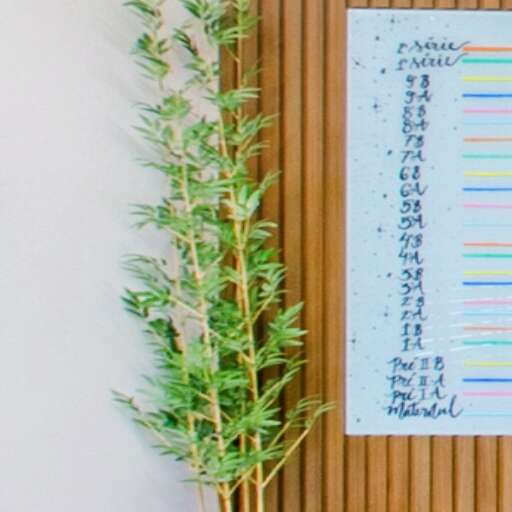 2ª série
1ª série
9B
9A
8B
8A
7B
7A
6B
6A
5B
5A
4B
4A
3B
3A
2B
2A
1B
1A
Pré II B
Pré II A
Pré I A
Maternal